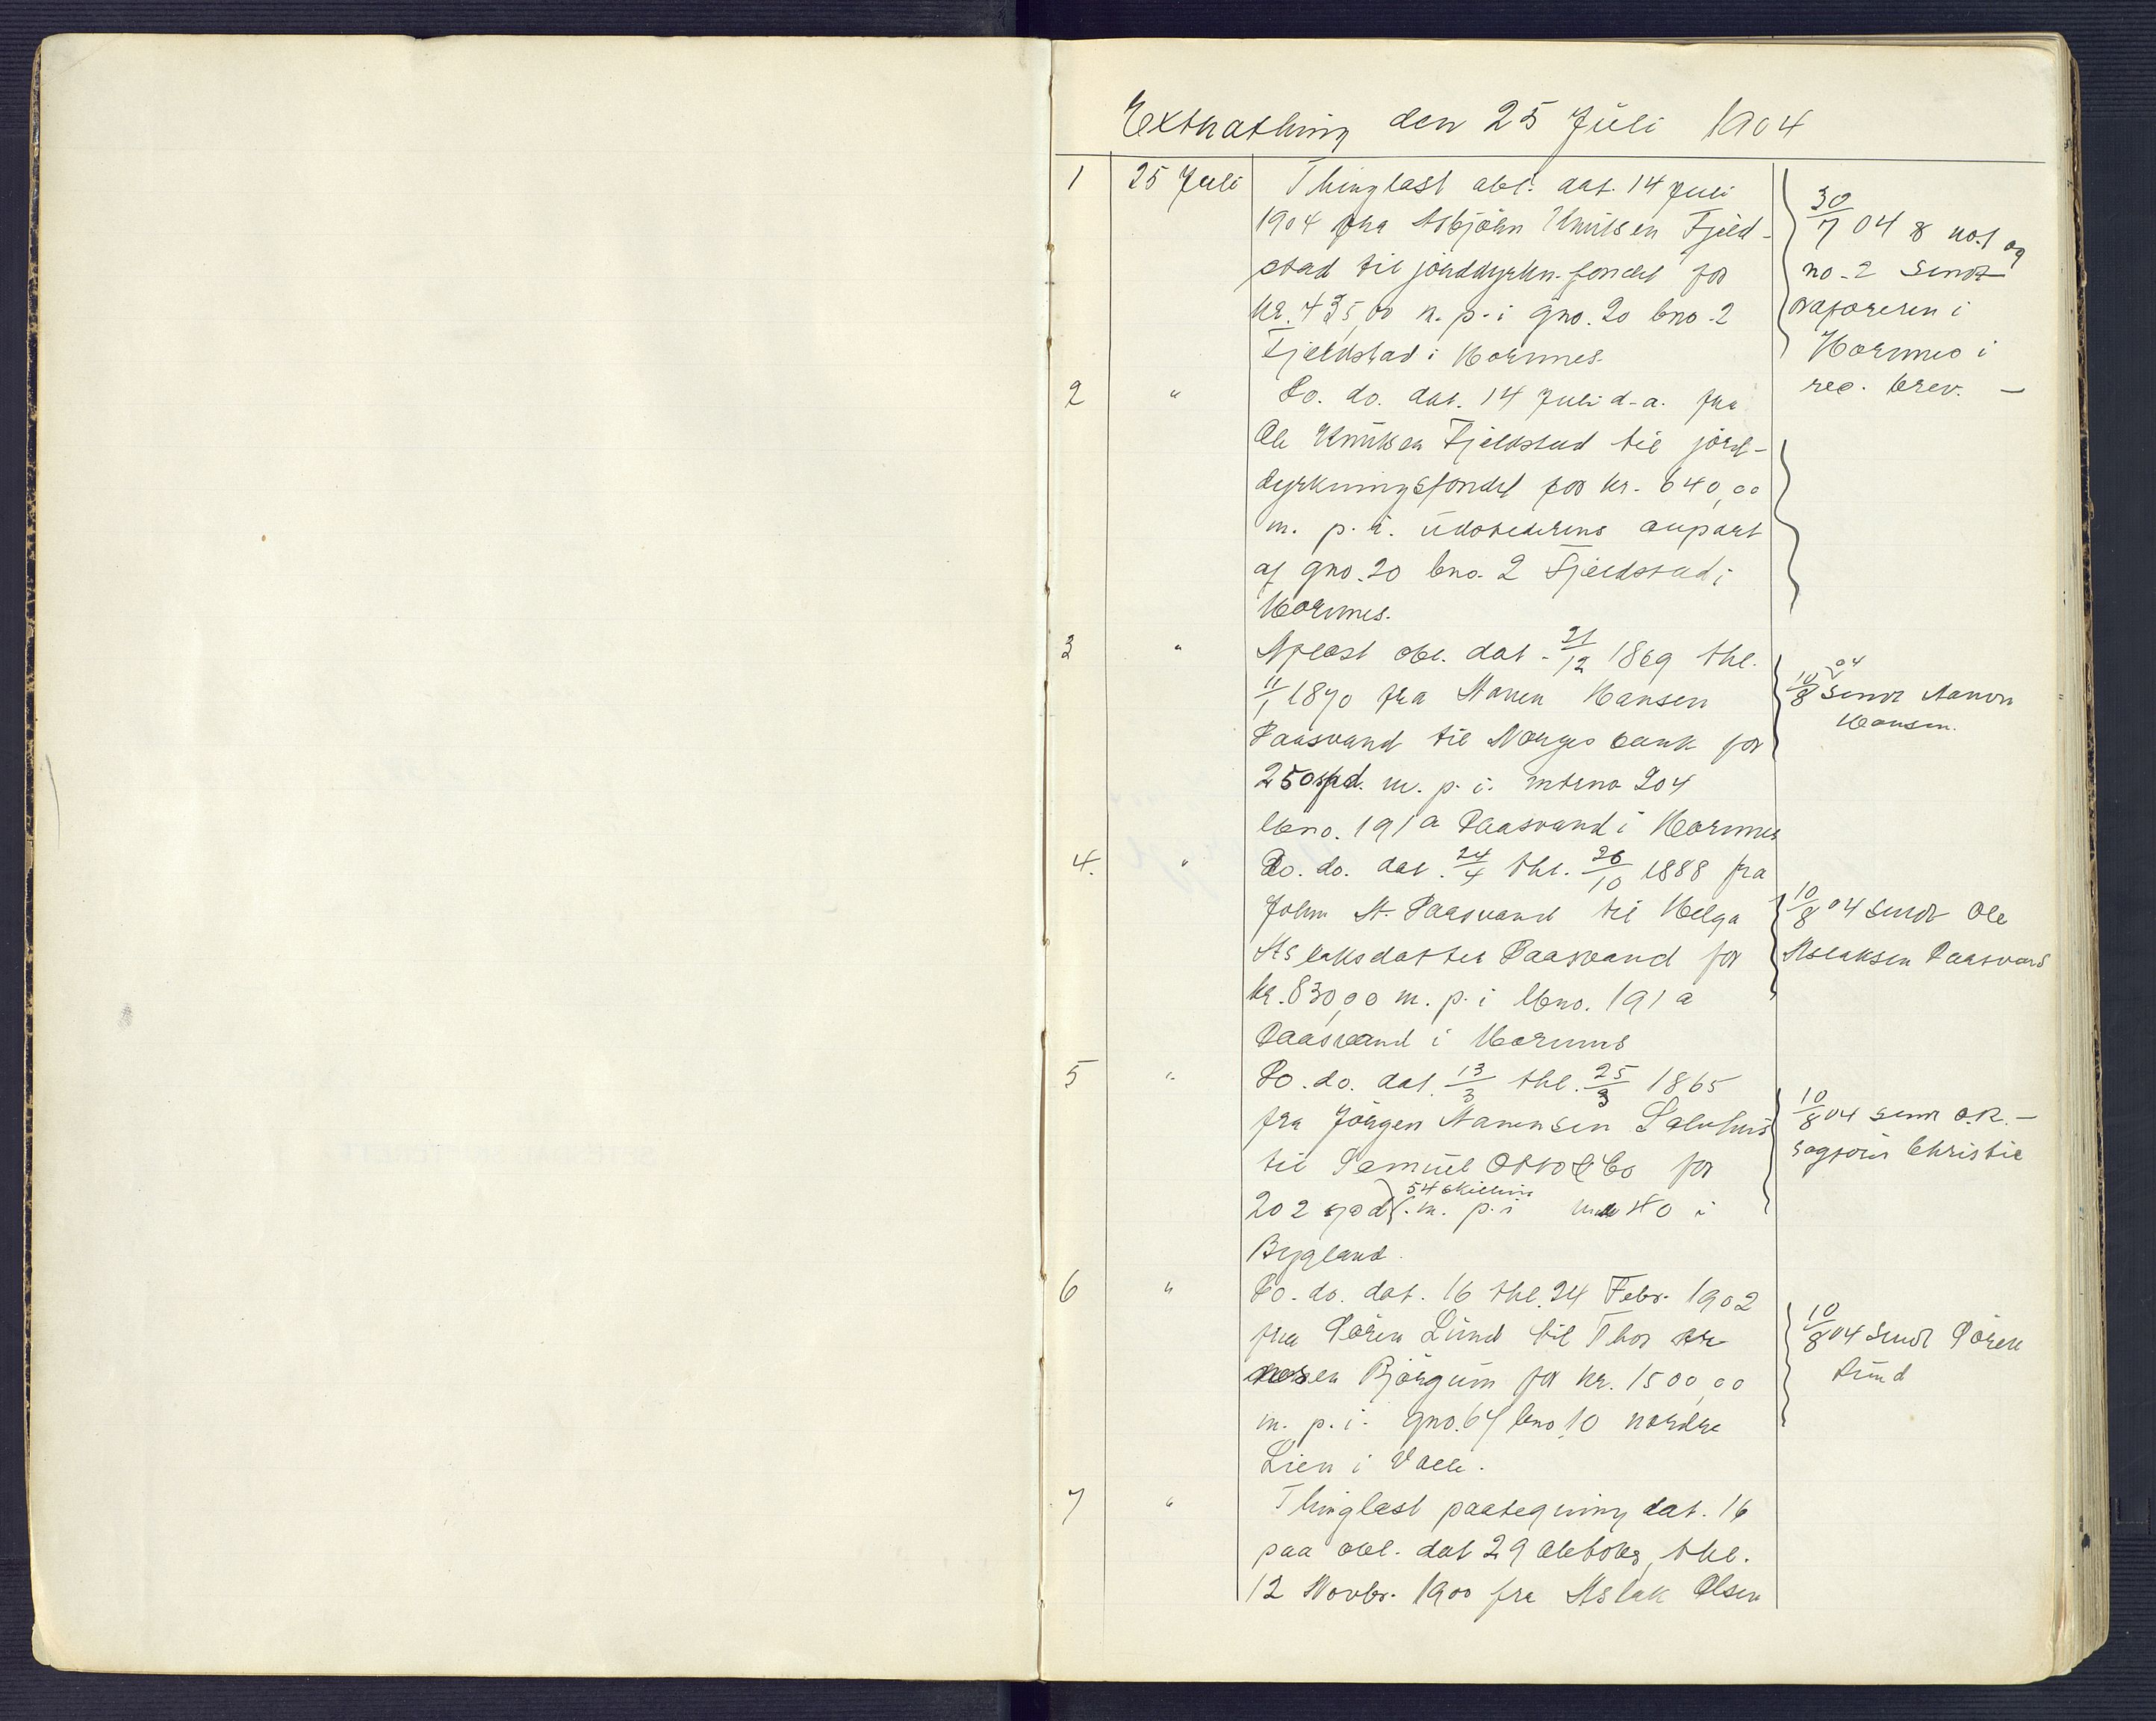 Extrathing den 25 Juli 1904
1 25 Juli Thinglæst obl. dat. 14 Juli
1904 fra Asbjörn Knutsen Fjeld-
stad til jorddyrkn.fondet for
kr. 435,00 m. p. i gno. 20 bno. 2
Fjeldstad i Hornnes.
30/7 04 no. 1 og
no. 2 sendt
i
Hornnes i
rec. brev. —
2 " Do. do. dat. 14 Juli d. a. fra
Ole Knutsen Fjeldstad til jord-
dyrkningsfondet for kr. 640,00
m. p. i. udstederens anpart
af gno. 20 bno. 2 Fjeldstad i
Hornnes.
3 " Aflæst obl. dat. 21/12 1869 thl.
11/1 1870 fra Hansen
Paasvand til Norges bank for
250 spd. m. p. i. mtrno 204
lbno. 191a Paasvand i Hornnes
10/8 04 sendt
Hansen.
4. " Do. do. dat. 24/4 thl. 26/10 1888 fra
John A. Paasvand til Helga
Aslaksdatter Paasvand for
kr. 830,00 m. p. i lbno. 191a
Paasvand i Hornnes
10/8 04 sendt Ole
Aslaksen Paasvand
5 " Do. do. dat. 13/3 thl. 25/3 1865
fra Jörgen
til Samuel Otto & Co for
202 spd. 54 skilling m. p. i i
Bygland.
10/8 04 sendt O.R.-
sagförer Christie
6 " Do. do. dat. 16 thl. 24 Febr. 1902
fra Sören Lund til Thor
Björgum for kr. 1500,00
m. p. i. gno. 67 bno. 10 nordre
Lien i Valle.
10/8 04 sendt Sören
Lund
7 " Thinglæst paategning dat. 16
paa obl. dat 29 oktober, thl.
12 Novbr. 1900 fra Aslak Olsen